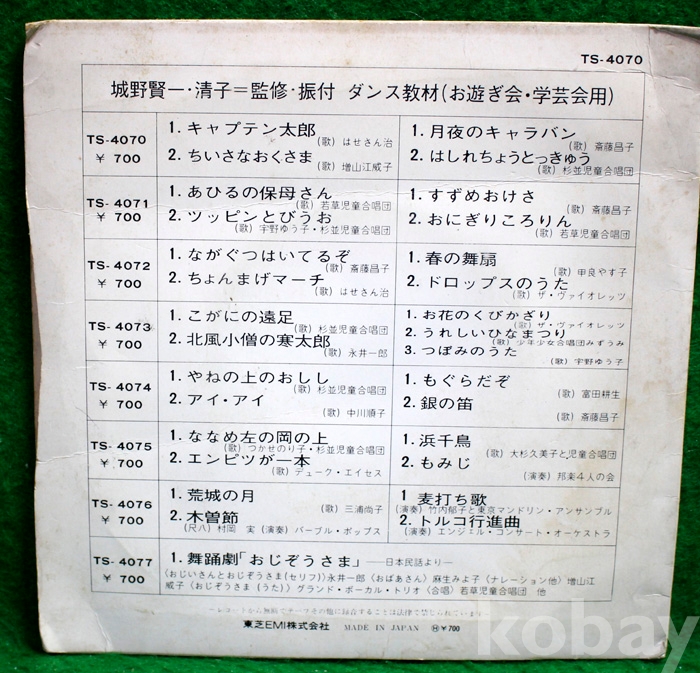 TS-4070
城野賢一・清子=監修・振付 ダンス教材(お遊ぎ会・学芸会用)
TS-4070
¥ 700
1. キャプテン太郎
(歌) はせさん治
2. ちいさなおくさま
(歌) 増山江威子
1. 月夜のキャラバン
(歌) 斎藤昌子
2. はしれちょうとっきゅう
(歌) 杉並児童合唱団
TS-4071
¥ 700
1. あひるの保母さん
(歌) 若草児童合唱団
2. ツッピンとびうお
(歌) 宇野ゆう子・杉並児童合唱団
1. すずめおけさ
(歌) 斎藤昌子
2. おにぎりころりん
(歌) 若草児童合唱団
TS-4072
¥ 700
1. ながぐつはいてるぞ
(歌) 斎藤昌子
2. ちょんまげマーチ
(歌) はせさん治
1. 春の舞扇
(歌) 申良やす子
2. ドロップスのうた
(歌) ザ・ヴァイオレッツ
TS-4073
¥ 700
1. こがにの遠足
(歌) 杉並児童合唱団
2. 北風小僧の寒太郎
(歌) 永井一郎
1. お花のくびかざり
(歌) ザ・ヴァイオレッツ
2. うれしいひなまつり
(歌) 少年少女合唱団みずうみ
3. つぼみのうた
(歌) 宇野ゆう子
TS-4074
¥ 700
1. やねの上のおしし
(歌) 杉並児童合唱団
2. アイ・アイ
(歌) 中川順子
1. もぐらだぞ
(歌) 富田耕生
2. 銀の笛
(歌) 斎藤昌子
TS-4075
¥ 700
1. ななめ左の岡の上
(歌) つかせのり子・杉並児童合唱団
2. エンピツが一本
(歌) デューク・エイセス
1. 浜千鳥
(歌) 大杉久美子と児童合唱団
2. もみじ
(演奏) 邦楽4人の会
TS-4076
¥ 700
1. 荒城の月
(歌) 三浦尚子
2. 木曽節
(尺八) 村岡 実 (演奏) バーブル・ポップス
1 麦打ち歌
(演奏) 竹内郁子と東京マンドリン・アンサンブル
2. トルコ行進曲
(演奏) エンジェル・コンサート・オーケストラ
TS-4077
¥ 700
1. 舞踊劇「おじぞうさま」 ──日本民話より─
〈おじいさんとおじぞうさま(セリフ)〉永井一郎 〈おばあさん〉麻生みよ子 〈ナレーション他〉増山江
威子 〈おじぞうさま(うた)〉グランド・ボーカル・トリオ 〈合唱〉若草児童合唱団 他
─レコードから無断でテープその他に録音することは法律で禁じられています─
東芝EMI株式会社 MADE IN JAPAN Ⓗ¥700
kobay